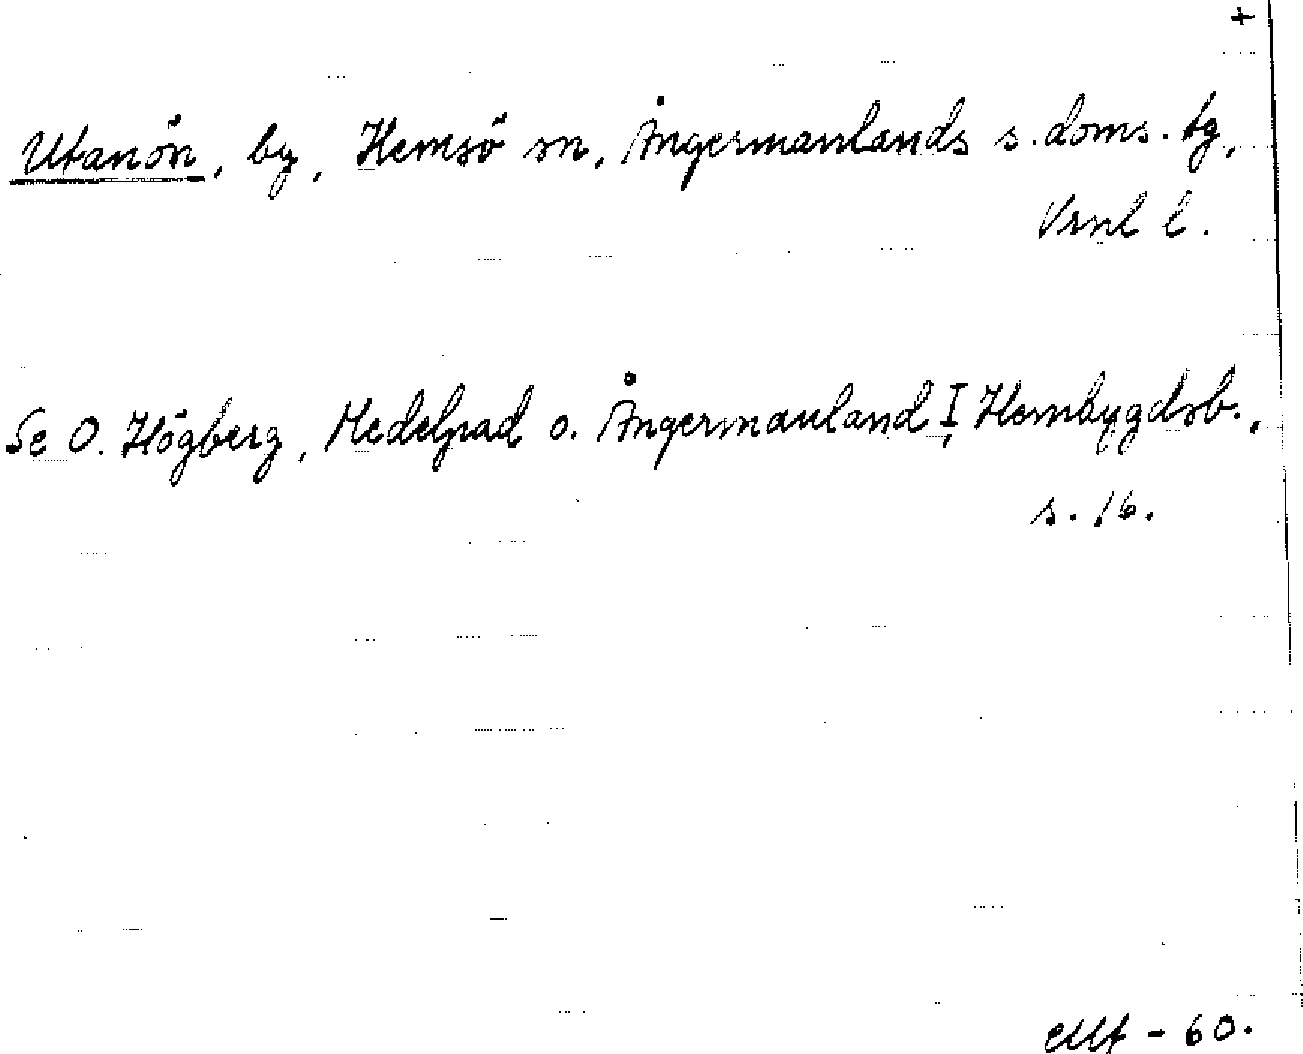 +
Utanön, by, Hemsö sn, Ångermanlands s. doms. tg,
Vrnl l.
Se O. Högberg, Medelpad o. Ångermanland I, Hembygdsb.,
s. 16.
- 60.